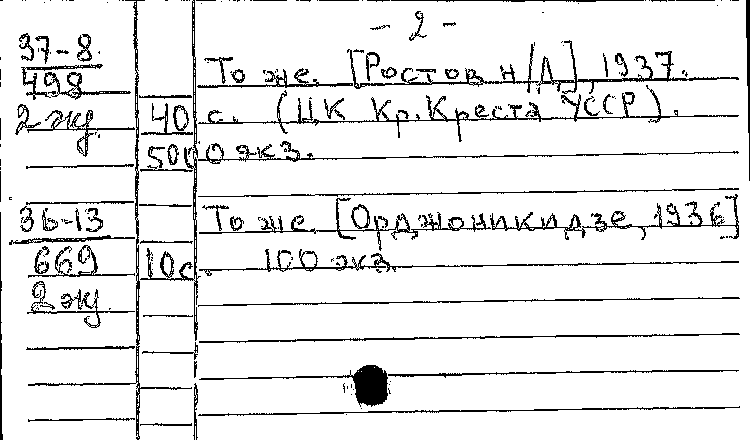 - 2 -
37-8
498
То же. [Ростов н/Д], 1937.
2 экз
40 с. (ЦК Кр. Креста УССР).
5000 экз.
36-13
То же. [Орджоникидзе, 1936]
669
10 с. 100 экз.
2 экз